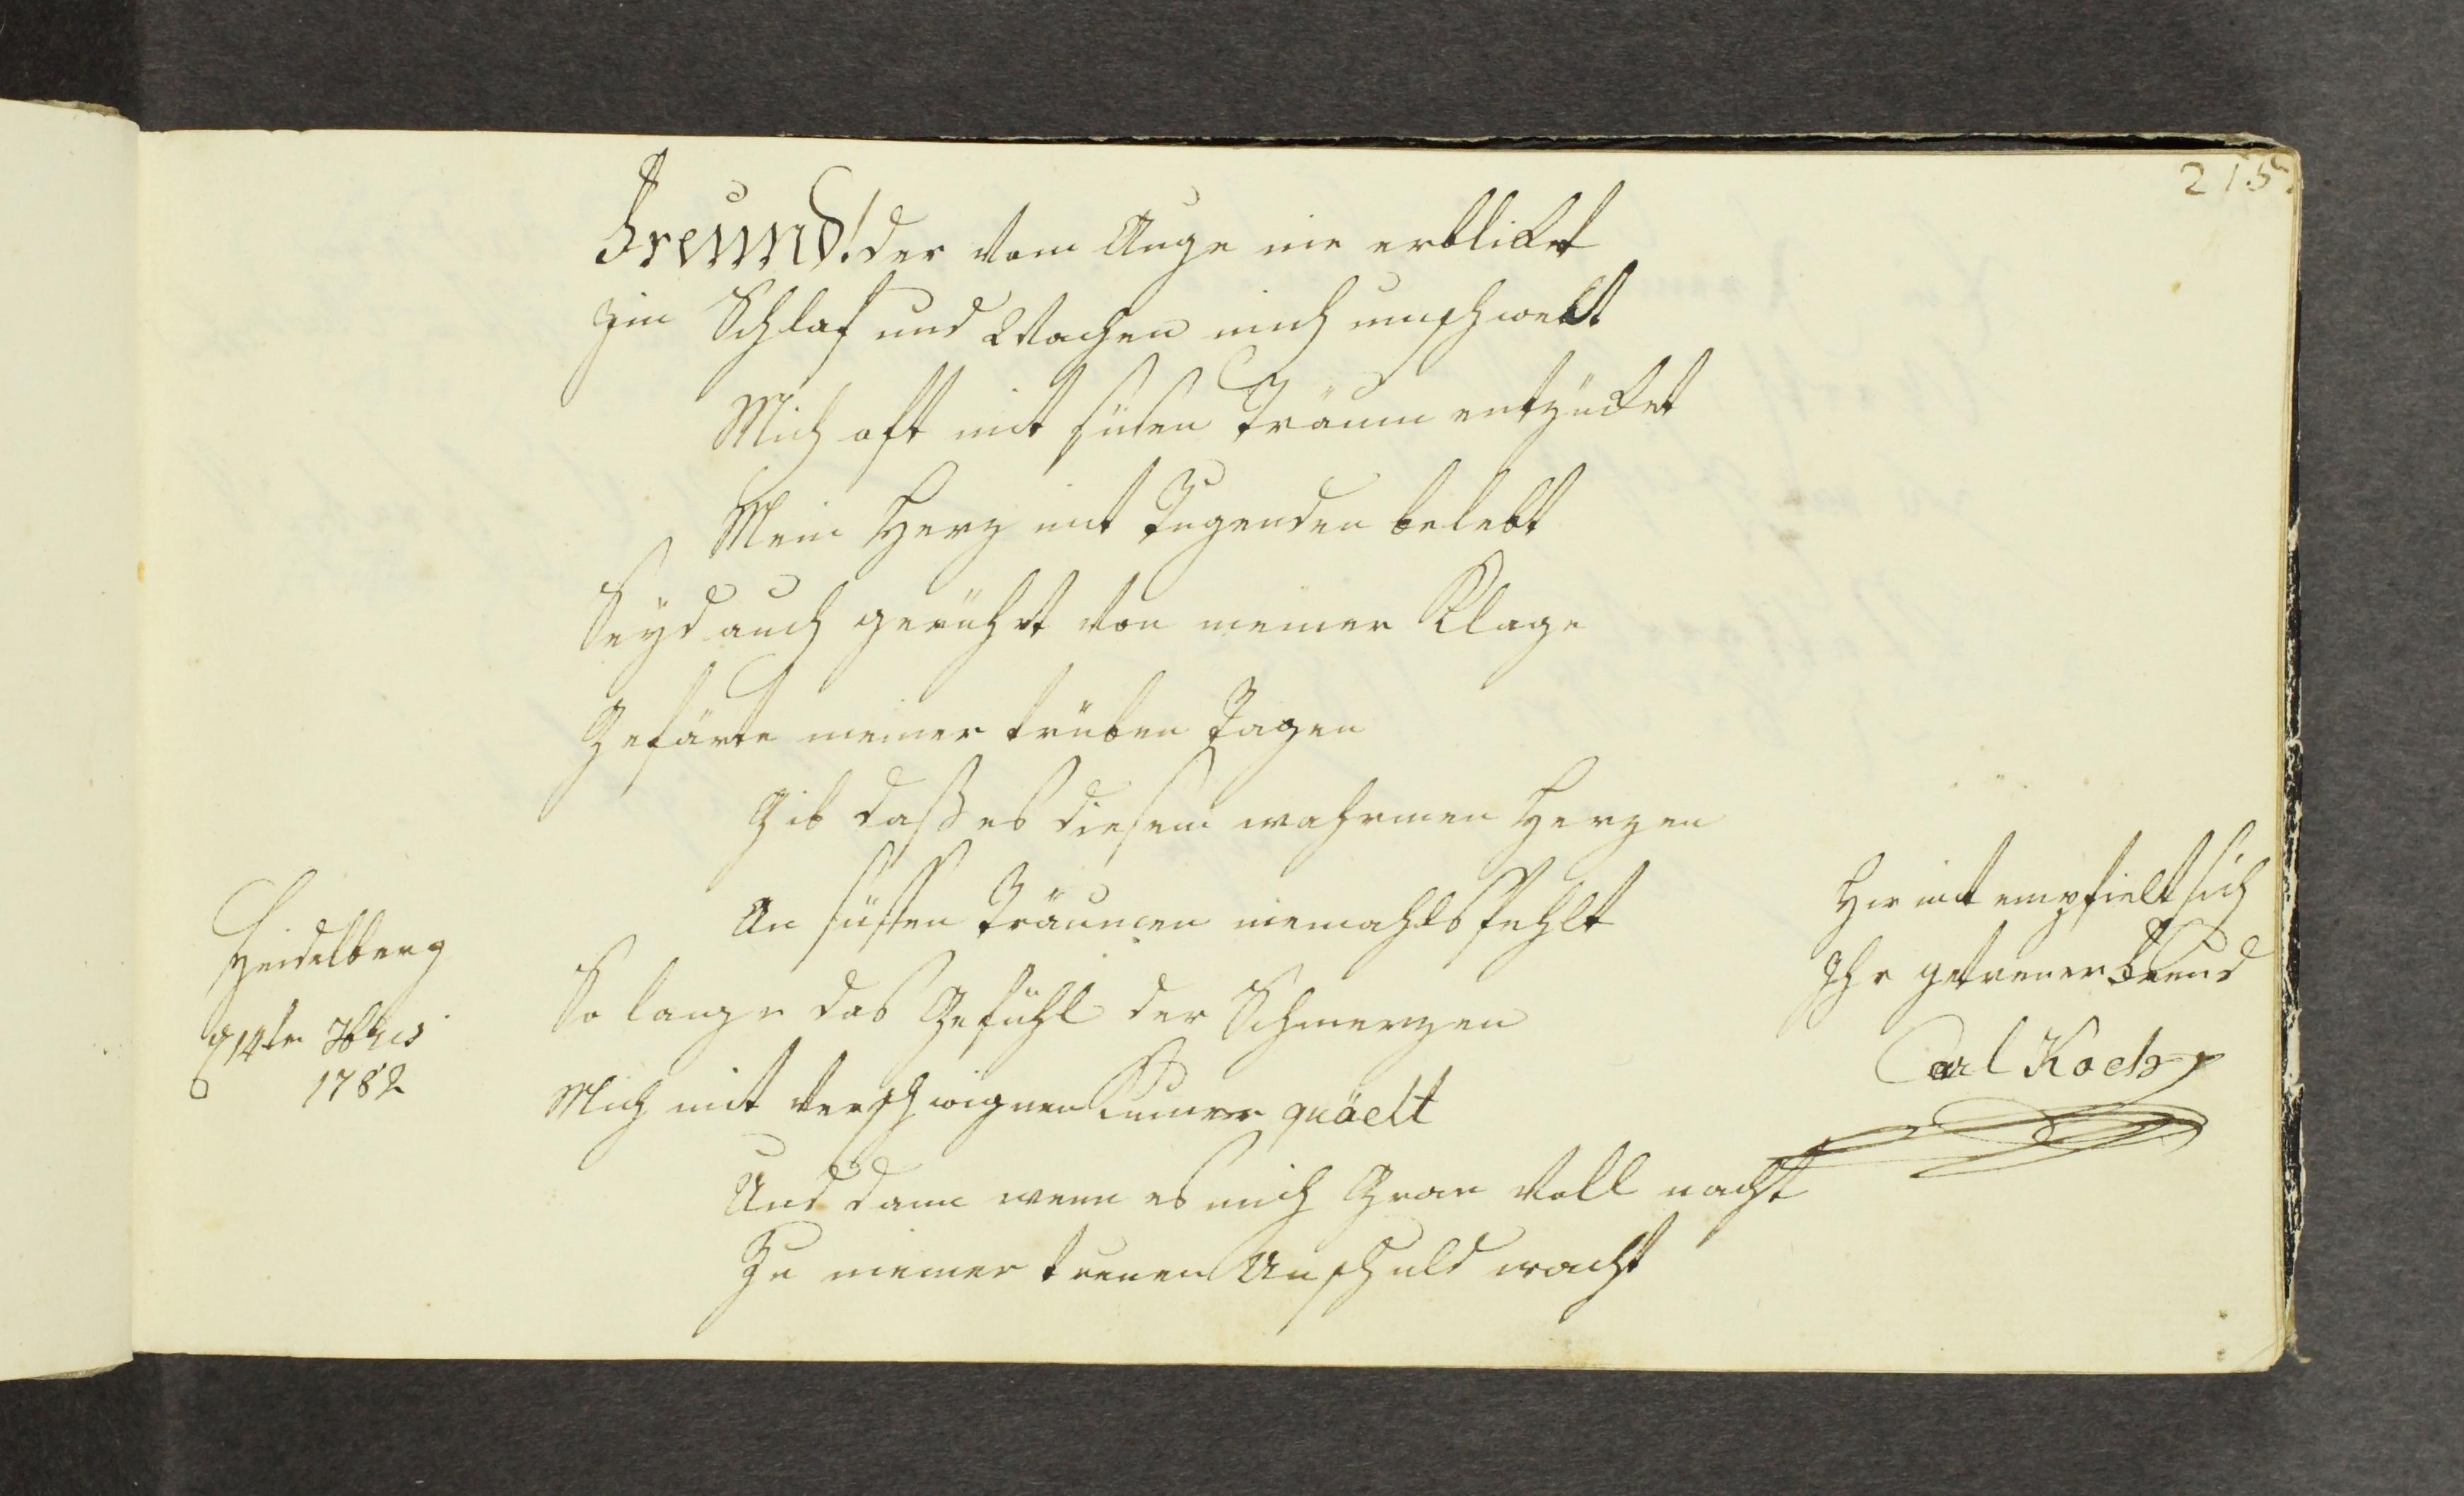 215.
Freund! der vom Auge nie erblickt
Im Schlaf und Wachen mich umschwebt
Mich oft mit süsen Träum entzücket
Mein Herz mit Tugenden belebt
Seyd auch gerührt von meiner Klage
Gefärte meiner trüben Tagen
Gib daß es diesem wahrmen Herzen
An süssen Träumen niemahls fehlt
So lange das Gefühl der Schmerzen
Mich mit verschwignen Kumer quäelt
Und dann wenn es mich Grau voll nacht
Zu meiner treuen Unschuld wacht
Heidelberg
d 14ten
1782
Hir mit empfielt sich
Ihr getreuer Freund
Carl Koch